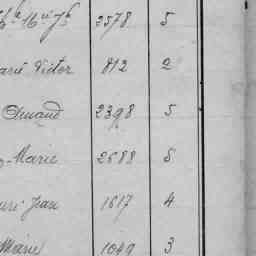 2578 5
Victor 812 2
Amand 2398 5
Marie 2688 5
Jean 1617 4
Marie 1049 3